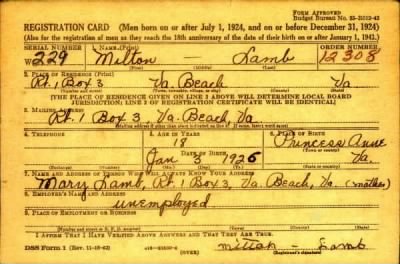 FORM APPROVED
Budget Bureau No. 33-R012-42
REGISTRATION CARD (Men born on or after July 1, 1924, and on or before December 31, 1924)
(Also for the registration of men as they reach the 18th anniversary of the date of their birth on or after January 1, 1943.)
SERIAL NUMBER 1. NAME (Print) ORDER NUMBER
W 229 Milton — Lamb 12308
(First) (Middle) (Last)
2. PLACE OF RESIDENCE (Print)
Rt. 1 Box 3 Va. Beach Va.
[THE PLACE OF RESIDENCE GIVEN ON LINE 2 ABOVE WILL DETERMINE LOCAL BOARD
JURISDICTION; LINE 2 OF REGISTRATION CERTIFICATE WILL BE IDENTICAL]
3. MAILING ADDRESS
Rt. 1 Box 3 Va. Beach, Va
4. TELEPHONE 5. AGE IN YEARS 6. PLACE OF BIRTH
18 Princess Anne
DATE OF BIRTH (Town or county)
Jan 3 1926 Va.
(Mo.) (Day) (Yr.) (State or country)
7. NAME AND ADDRESS OF PERSON WHO WILL ALWAYS KNOW YOUR ADDRESS
Mary Lamb, Rt. 1 Box 3, Va. Beach, Va. (mother)
8. EMPLOYER'S NAME AND ADDRESS
unemployed
9. PLACE OF EMPLOYMENT OR BUSINESS
I AFFIRM THAT I HAVE VERIFIED ABOVE ANSWERS AND THAT THEY ARE TRUE.
DSS Form 1 (Rev. 11-16-42) (OVER) Milton — Lamb
(Registrant's signature)